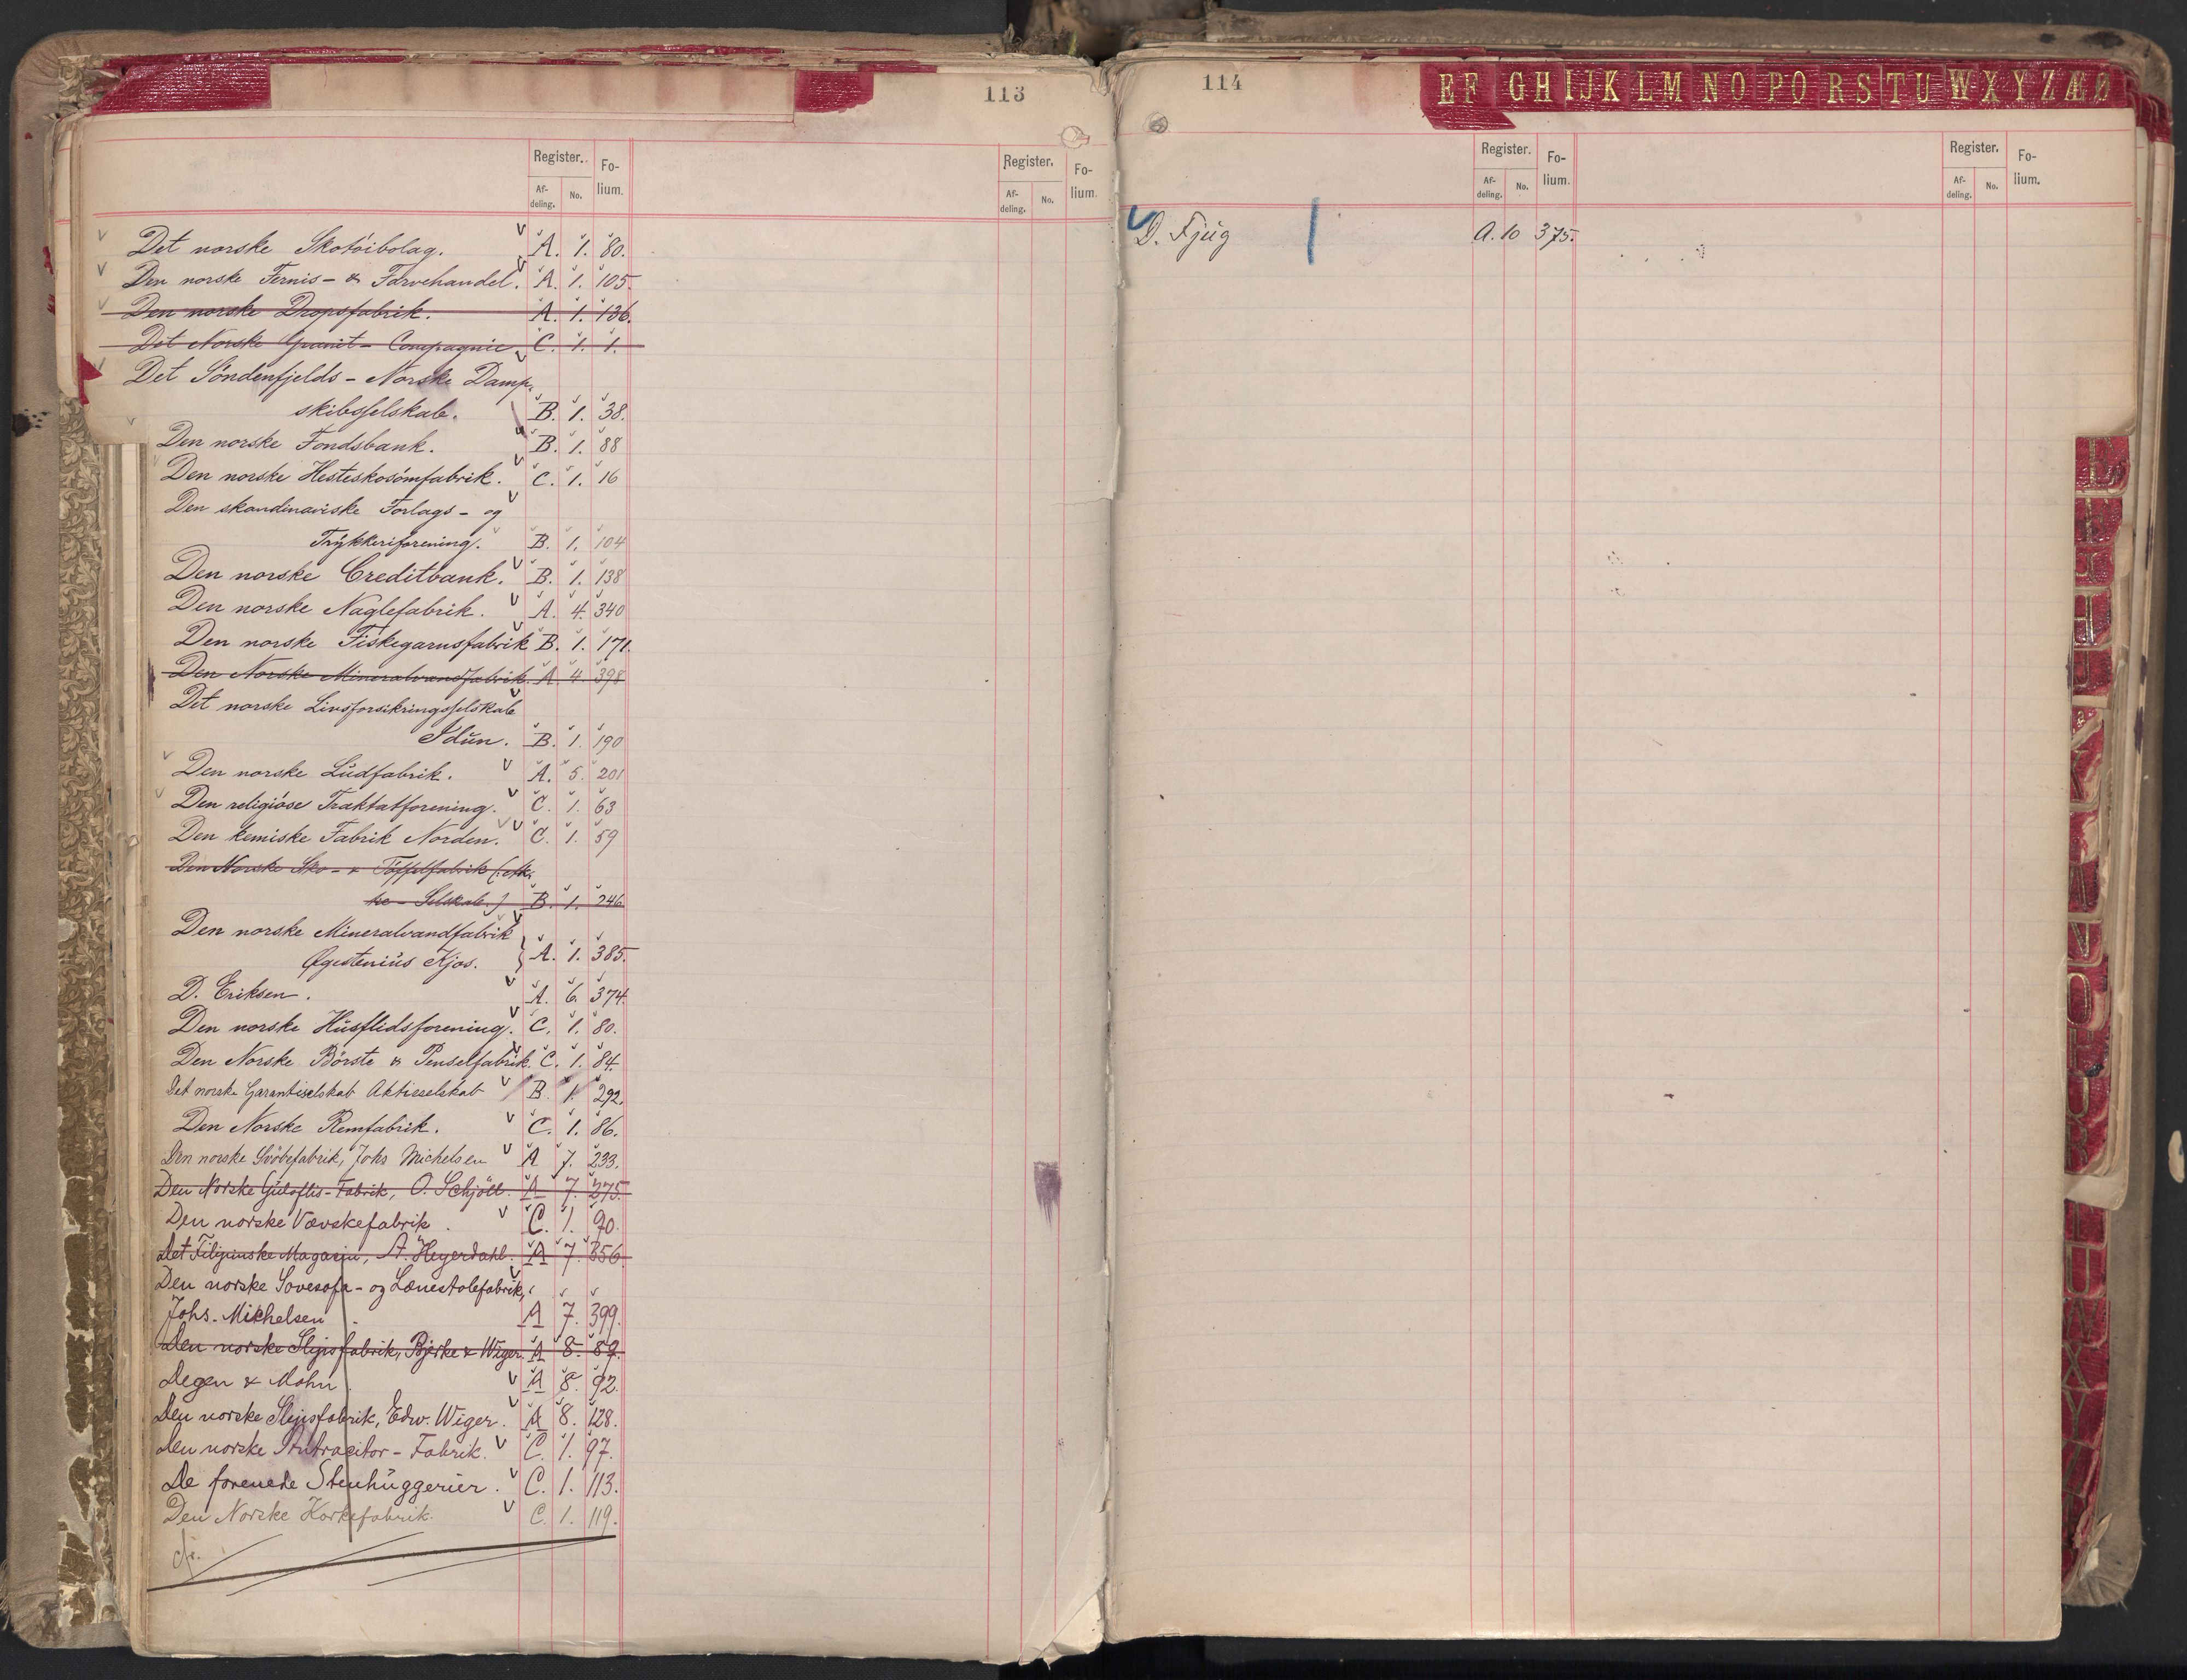 113
Register. Fo-
lium.
Af-
deling. No.
Register. Fo-
lium.
Af-
deling. No.
Det norske Skotöibolag. A. 1. 80.
Den norske Fernis- & Farvehandel. A. 1. 105.
Den norske Dropsfabrik. A. 1. 136.
Det Norske Granit- Compagnie. C. 1. 1.
Det Söndenfjelds-Norske Damp-
skibsselskab. B. 1. 38.
Den norske Fondsbank. B. 1. 88
Den norske Hesteskosömfabrik. C. 1. 16
Den skandinaviske Forlags- og
Trykkeriforening. B. 1. 104
Den norske Creditbank. B. 1. 138
Den norske Naglefabrik. A. 4. 340
Den norske Fiskegarnsfabrik B. 1. 171.
Den Norske Mineralvandfabrik. A. 4. 398
Det norske Livsforsikringsselskab
Idun. B. 1. 190
Den norske Ludfabrik. A. 5. 201
Den religiöse Traktatforening. C. 1. 63
Den kemiske Fabrik Norden. C. 1. 59
Den Norske Sko- & Töffelfabrik
Selskab.) B. 1. 246
Den norske Mineralvandfabrik
Kjos. A. 1. 385.
D. Eriksen. A. 6. 374.
Den norske Husflidsforening. C. 1. 80.
Den Norske Börste & Penselfabrik. C. 1. 84.
Det norske Garantiselskab Aktieselskab B. 1. 292.
Den Norske Remfabrik. C. 1. 86.
Den norske Svöbefabrik, Johs Michelsen A 7. 233.
Den Norske Guloflis-Fabrik, O. Schjöll. A 7. 275.
Den norske Vævskefabrik. C. 1. 90.
Det Filipinske Magasin, A. Heyerdahl. A 7. 356.
Den norske Sovesofa- og Lænestolefabrik,
Johs. Mikhelsen. A 7. 399.
Den norske Slipsfabrik, Bjerke & Wiger. A 8. 87.
Degen & Mohn. A 8. 92.
Den norske Slipsfabrik, Edw. Wiger. A 8. 128.
Den norske Antracitor-Fabrik. C. 1. 97.
De forenede Stenhuggerier. C. 1. 113.
Den Norske Korkefabrik. C. 1. 119.
cfr.
114
EF GH IJK LM NO PQ RS TU WX YZ ÆØ
Register. Fo-
lium.
Af-
deling. No.
Register. Fo-
lium.
Af-
deling. No.
D. Fjug A. 10 375.